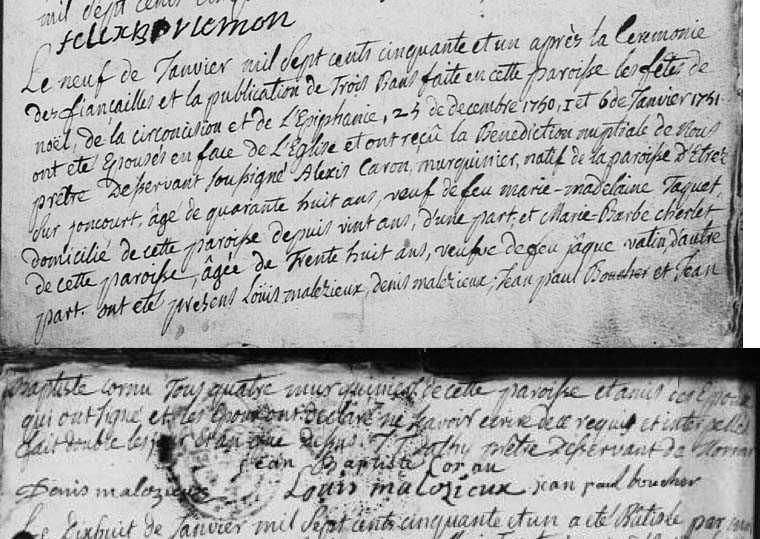 mil sept cents cinq
felix Borlemon
Le neuf de Janvier mil sept cents cinquante et un après la Ceremonie
des fiançailles et la publication de Trois Bans faite en cette paroisse les fêtes de
noël, de la circoncision et de L'Epiphanie, 25 de decembre 1750, 1 et 6 de Janvier 1751
ont eté Epousés en face de L'Eglise et ont reçû la Benediction nuptiale de Nous
prêtre Desservant soussigné Alexis Caron, murquinier, natif de la paroisse D'Etrez
sur joncourt, âgé de quarante huit ans, veuf de feu marie-madelaine Taquet,
domicilié de cette paroisse depuis vint ans, d'une part, et Marie-Barbe cherlet
de cette paroisse, âgée de Trente huit ans, veufve de feu jâque vatin, d'autre
part. ont eté presens Loüis malezieux, denis malezieux, Jean paul Boucher et Jean
Baptiste cornu Tous quatre murquiniers de cette paroisse et amis des Epoux
qui ont signé et les Epoux ont declaré ne sçavoir ecrire de ce requis et interpellés
fait double les jour et an que dessus. prêtre Desservant de
jean Baptiste Cornu
Denis malozieux Louis malozieux jean paul boucher
Le Dixhuit de Janvier mil sept cents cinquante et un a eté Batisé par